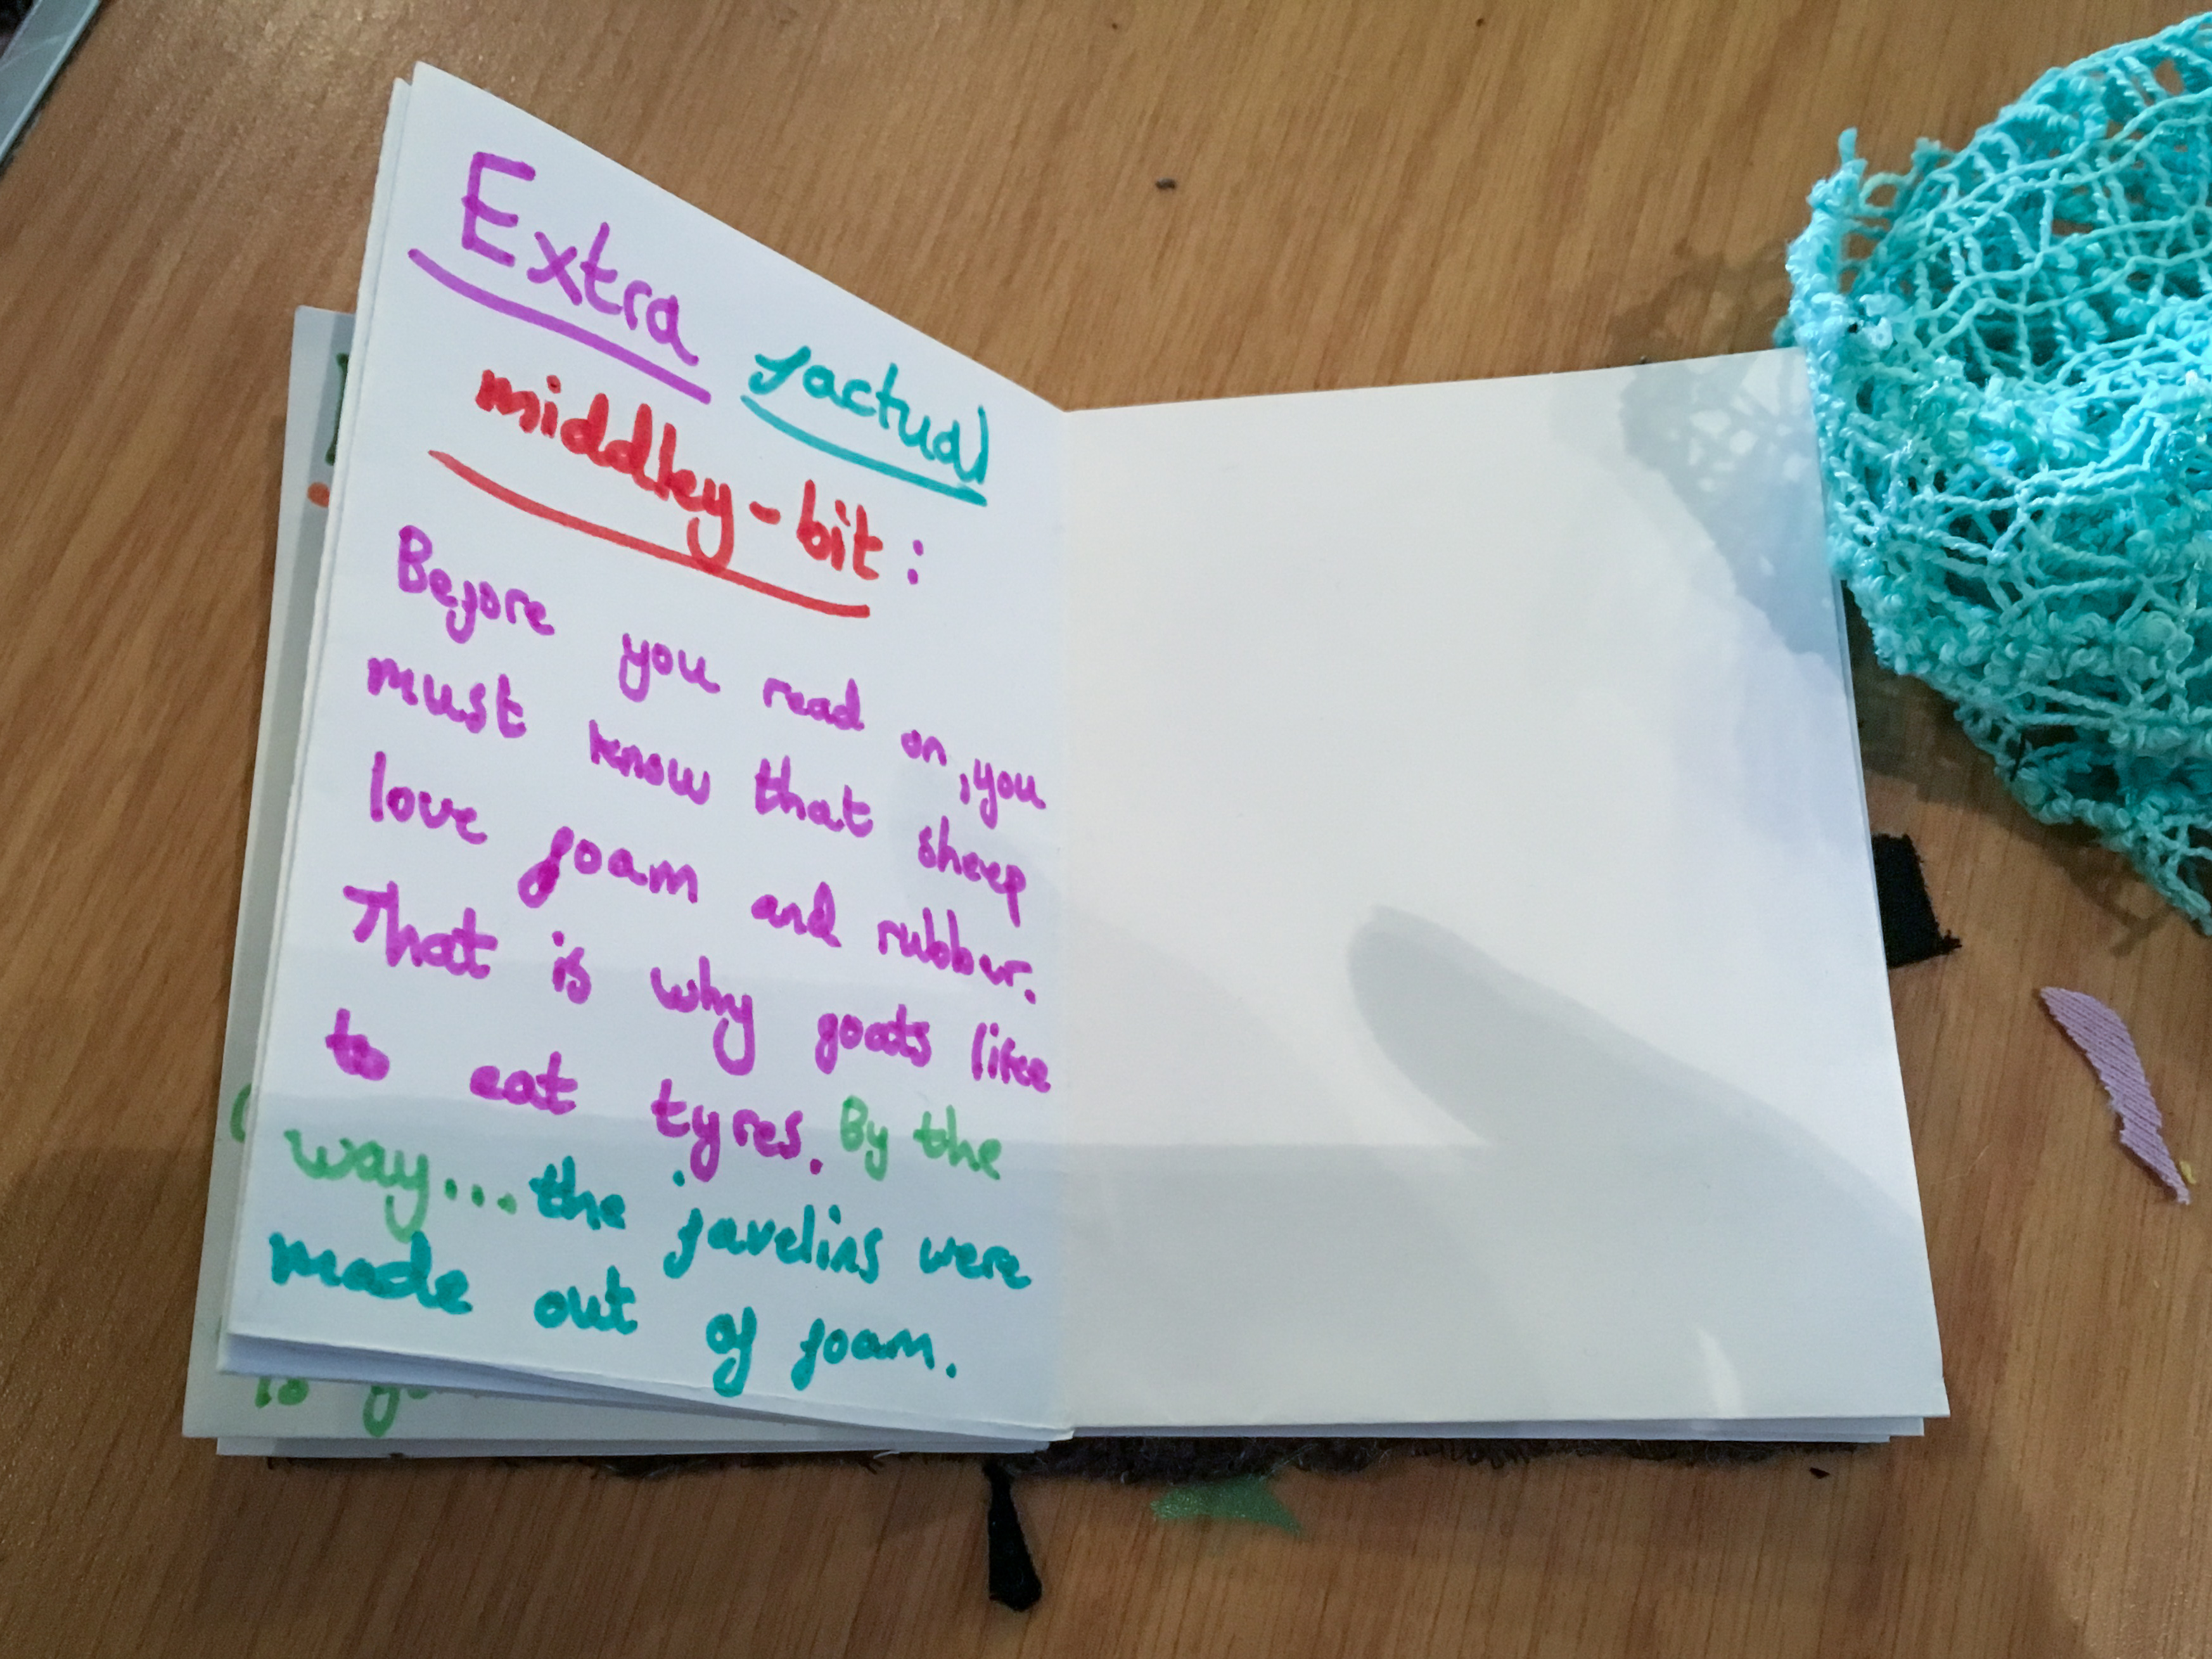 Extra factual
middley-bit:
Before you read on, you
must know that sheep
love foam and rubber.
That is why goats like
to eat tyres. By the
way... the javelins were
made out of foam.
is